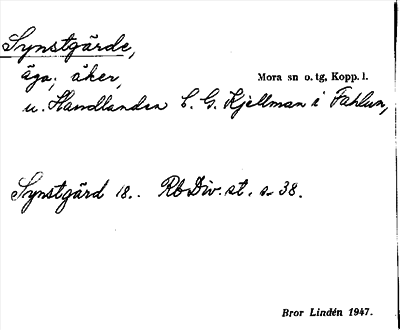 Synstgärde,
äga; åker,
Mora sn o. tg, Kopp. l.
u. Handlanden C. G. Kjellman i Fahlun,
Synstgärd 18.. Rb Div. st. s. 38.
Bror Lindén 1947.